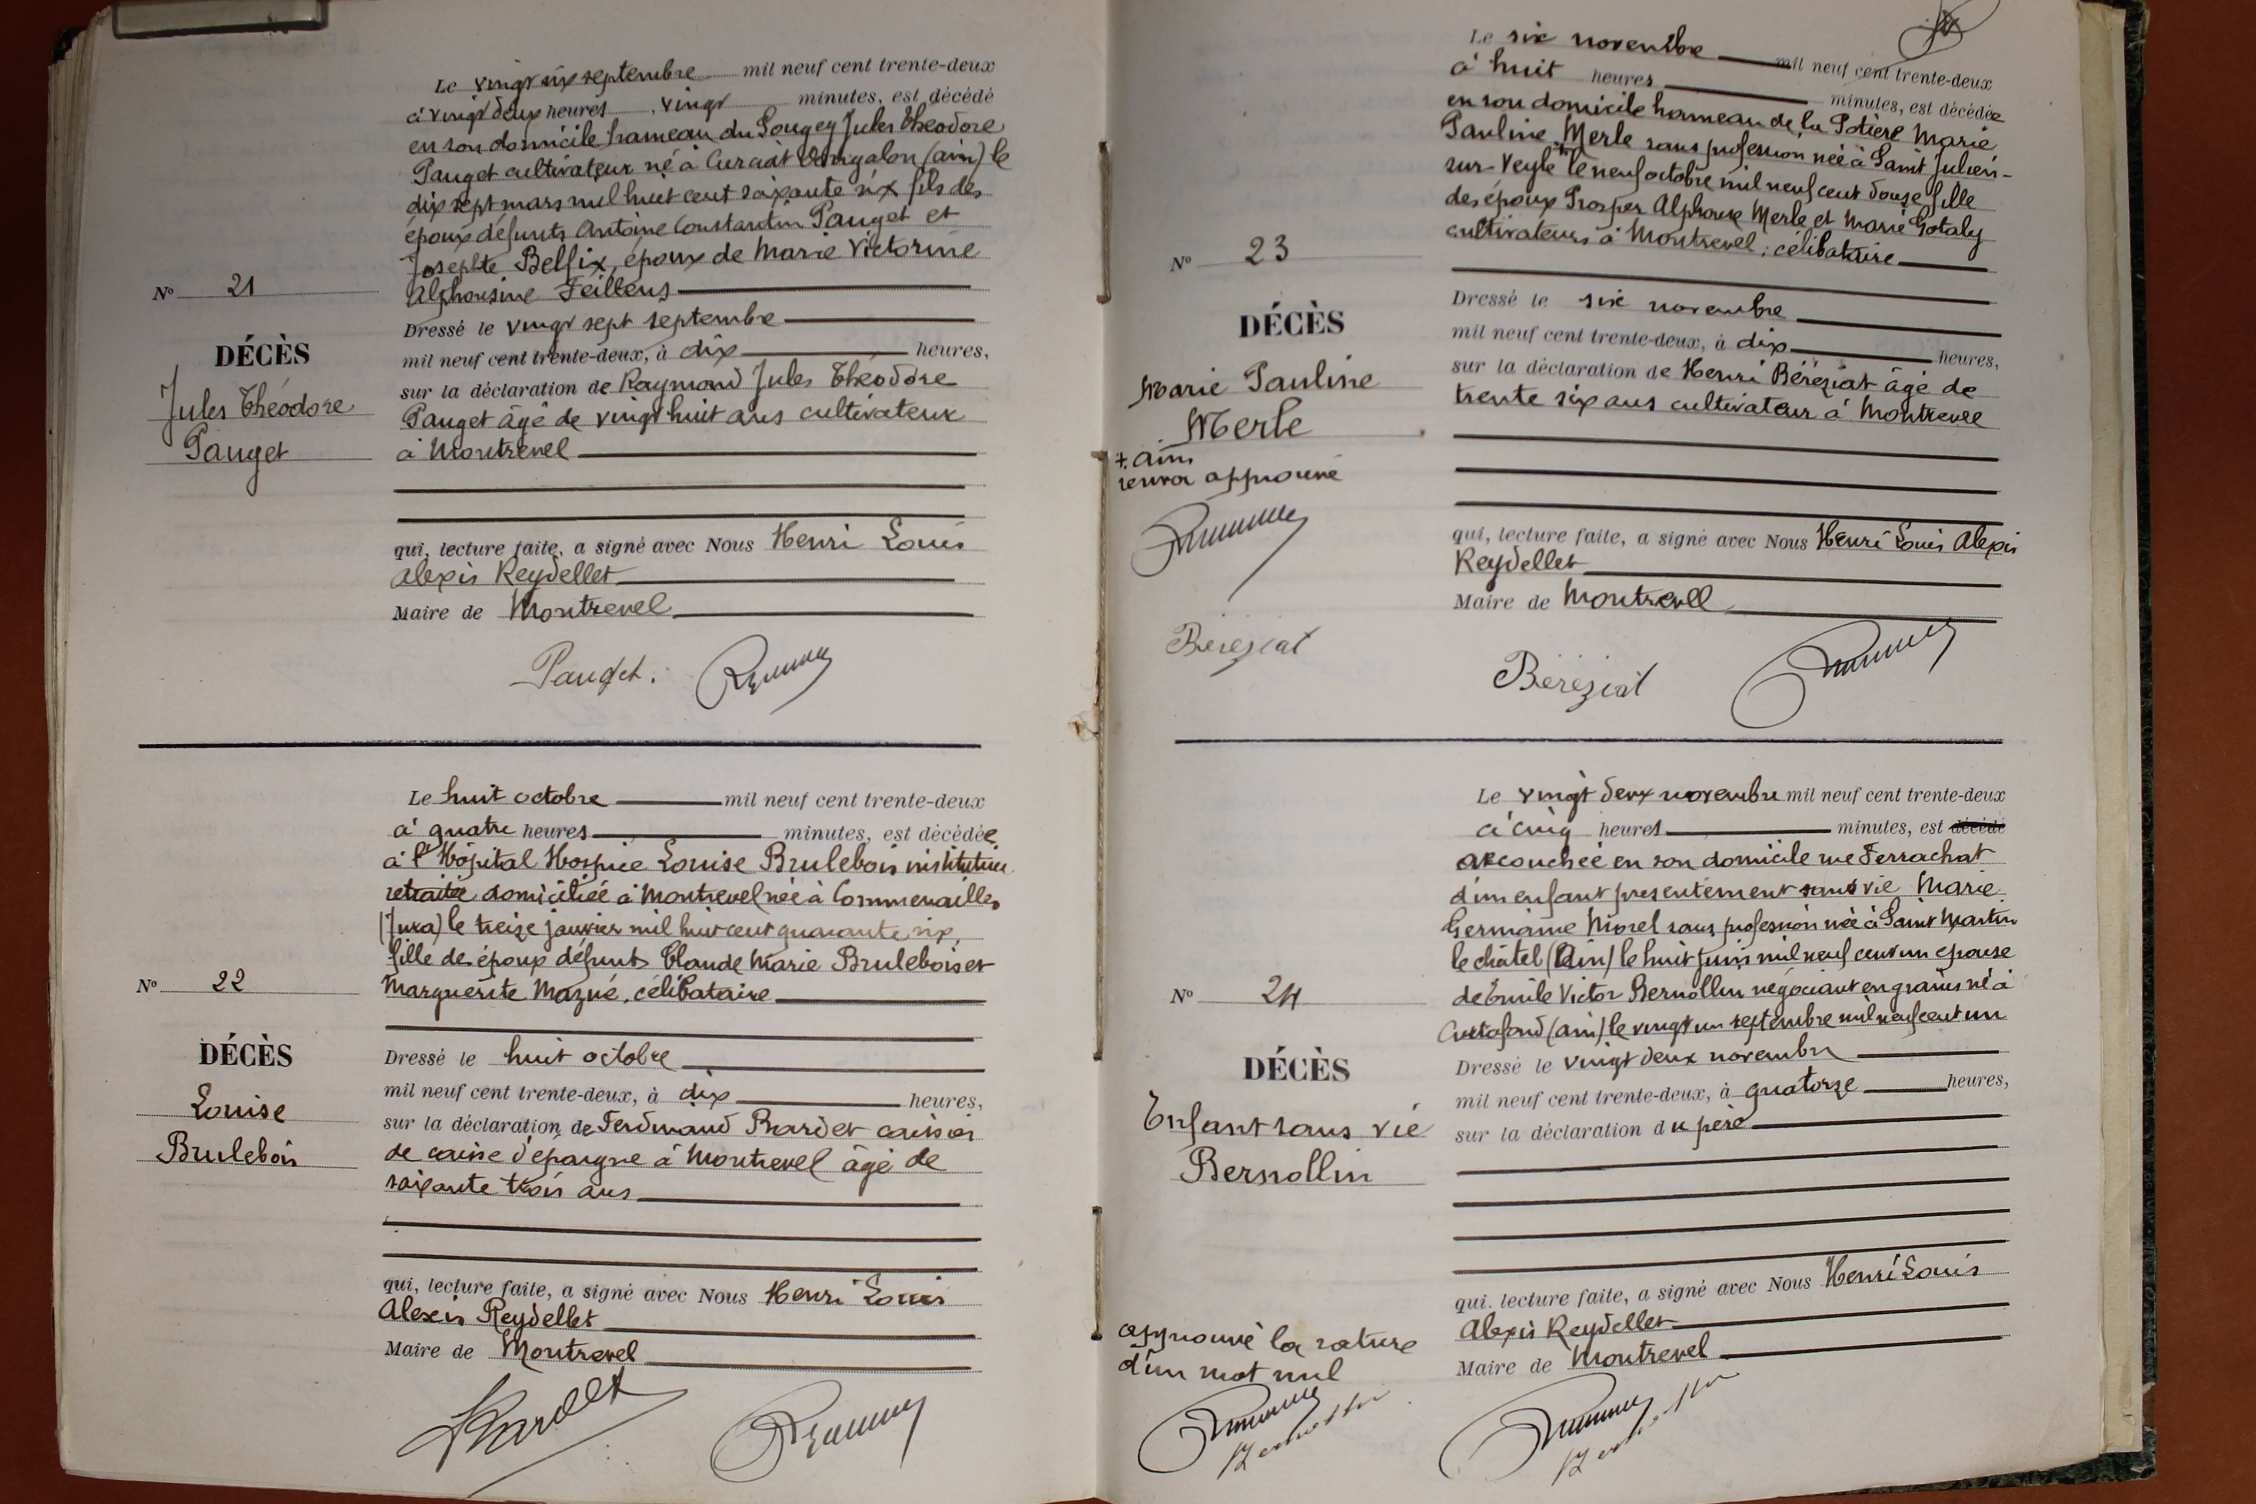 Le vingt six septembre mil neuf cent trente-deux
à vingt deux heures vingt minutes, est décédé
en son domicile hameau du Sougey Jules Théodore
Pauget cultivateur né à Curciat Dongalon (ain) le
dix sept mars mil huit cent soixante six fils des
époux défunts Antoine Constantin Pauget et
Josephte Belfix, époux de Marie Victorine
Alphonsine Feillens
N° 21
DÉCÈS
Jules Théodore
Pauget
Dressé le vingt sept septembre
mil neuf cent trente-deux, à dix heures,
sur la déclaration de Raymond Jules Théodore
Pauget âgé de vingt huit ans cultivateur
à Montrevel
qui, lecture faite, a signé avec Nous Henri Louis
Alexis Reydellet
Maire de Montrevel
Pauget.
Le huit octobre mil neuf cent trente-deux
à quatre heures minutes, est décédée
à l'Hôpital Hospice Louise Brulebois institutrice
retraitée domiciliée à Montrevel née à Commenailles
(Jura) le treize janvier mil huit cent quarante six,
fille des époux défunts Claude Marie Brulebois et
Marguerite Mazué, célibataire
N° 22
DÉCÈS
Louise
Brulebois
Dressé le huit octobre
mil neuf cent trente-deux, à dix heures,
sur la déclaration de Ferdinand Bardet caissier
de caisse d'épargne à Montrevel âgé de
soixante trois ans
qui, lecture faite, a signé avec Nous Henri Louis
Alexis Reydellet
Maire de Montrevel
Bardet
Le six novembre mil neuf cent trente-deux
à huit heures minutes, est décédée
en son domicile hameau de la Potière Marie
Pauline Merle sans profession née à Saint Julien-
sur-Veyle + le neuf octobre mil neuf cent douze fille
des époux Prosper Alphonse Merle et Marie Gotaly
cultivateurs à Montrevel, célibataire
N° 23
DÉCÈS
Marie Pauline
Merle
+ ain
renvoi approuvé
Béréziat
Dressé le six novembre
mil neuf cent trente-deux, à dix heures,
sur la déclaration de Henri Béréziat âgé de
trente six ans cultivateur à Montrevel
qui, lecture faite, a signé avec Nous Henri Louis Alexis
Reydellet
Maire de Montrevel
Béréziat
Le vingt deux novembre mil neuf cent trente-deux
à cinq heures minutes, est décédé
accouchée en son domicile rue Ferrachat
d'un enfant presentement sans vie Marie
Germaine Morel sans profession née à Saint Martin
le châtel (Ain) le huit juin mil neuf cent un épouse
de Emile Victor Bernollin négociant en grains né à
Curtafond (ain) le vingt un septembre mil neuf cent un
N° 24
DÉCÈS
Enfant sans vie
Bernollin
Dressé le vingt deux novembre
mil neuf cent trente-deux, à quatorze heures,
sur la déclaration du père
qui, lecture faite, a signé avec Nous Henri Louis
Alexis Reydellet
Maire de Montrevel
approuvé la rature
d'un mot nul
Bernollin
Bernollin